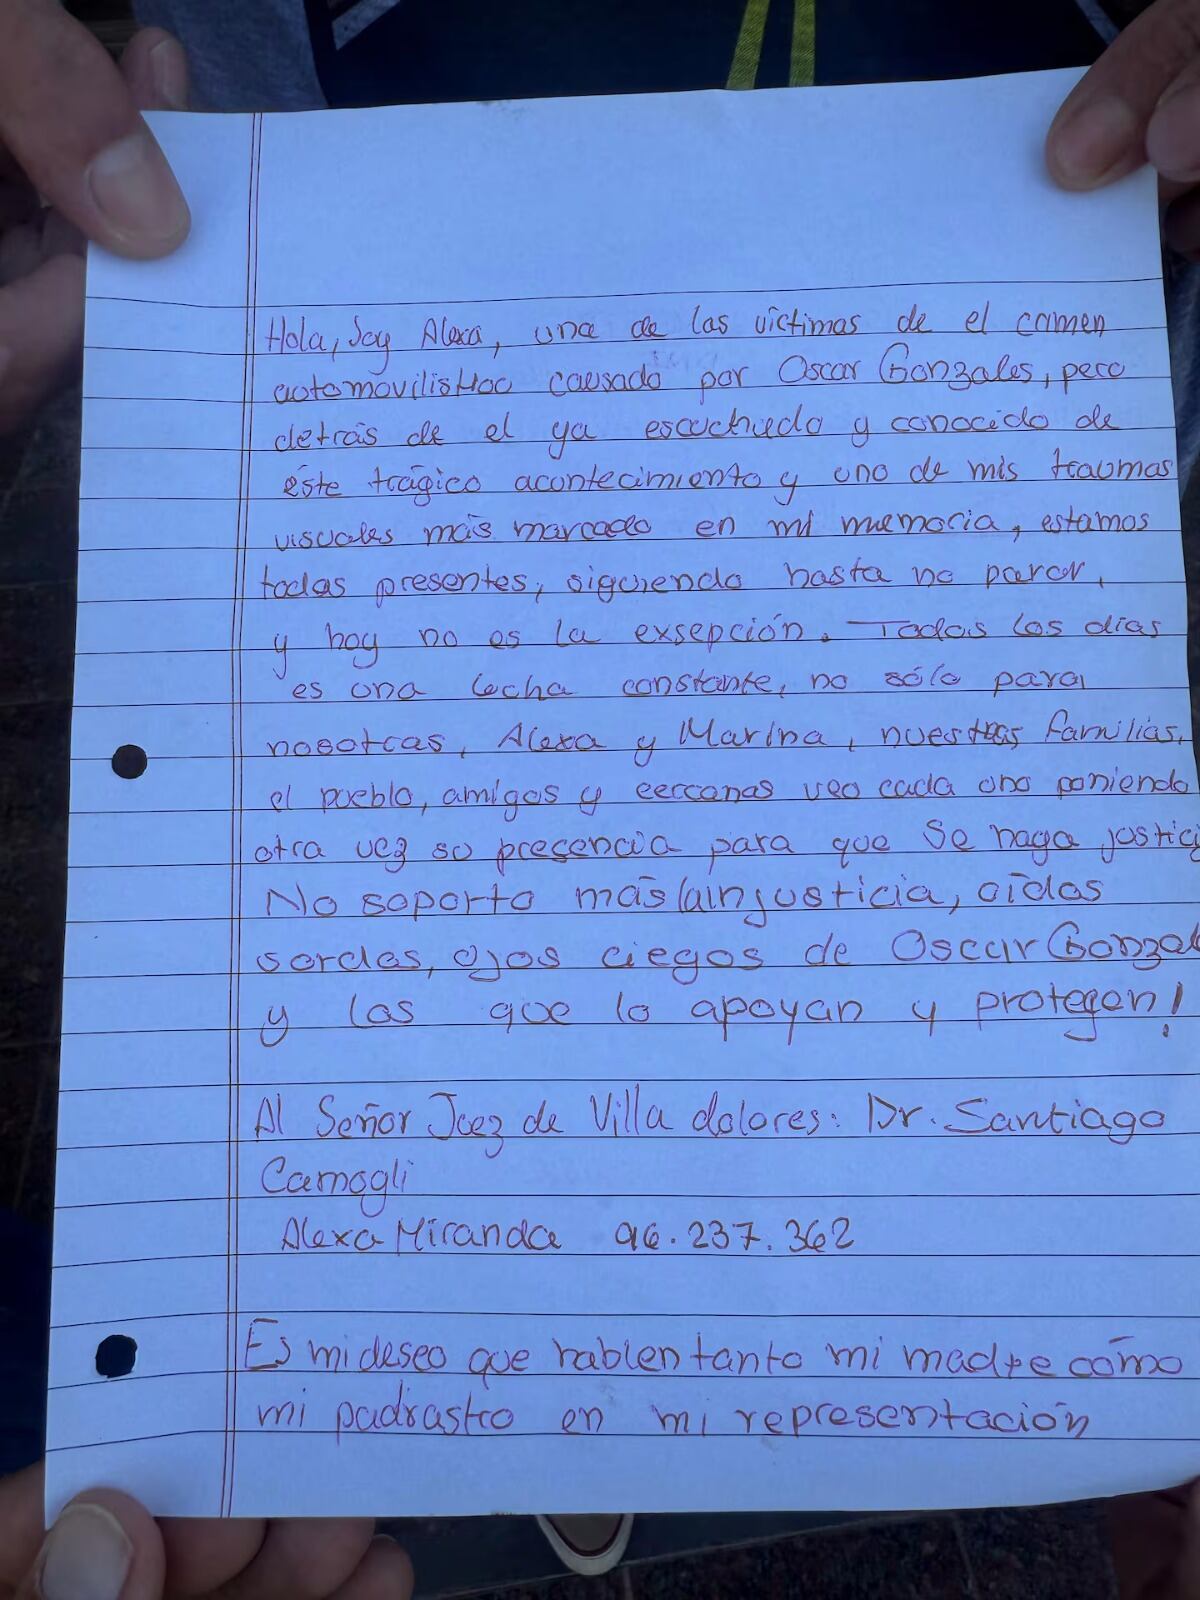 Hola, Soy Alexa, una de las víctimas de el crimen
automovilistico causado por Oscar Gonzales, pero
detrás de el ya escuchado y conocido de
éste trágico acontecimiento y uno de mis traumas
visuales más marcado en mi memoria, estamos
todas presentes, siguiendo hasta no parar,
y hoy no es la exsepción. Todos los días
es una lucha constante, no sólo para
nosotras, Alexa y Marina, nuestras familias,
el pueblo, amigos y cercanas veo cada uno poniendo
otra vez su presencia para que se haga justici
No soporto más la injusticia, oídos
sordos, ojos ciegos de Oscar Gonzal
y los que lo apoyan y protegen!
Al Señor Juez de Villa dolores: Dr. Santiago
Camogli
Alexa Miranda 96.237.362
Es mi deseo que hablen tanto mi madre cómo
mi padrastro en mi representación